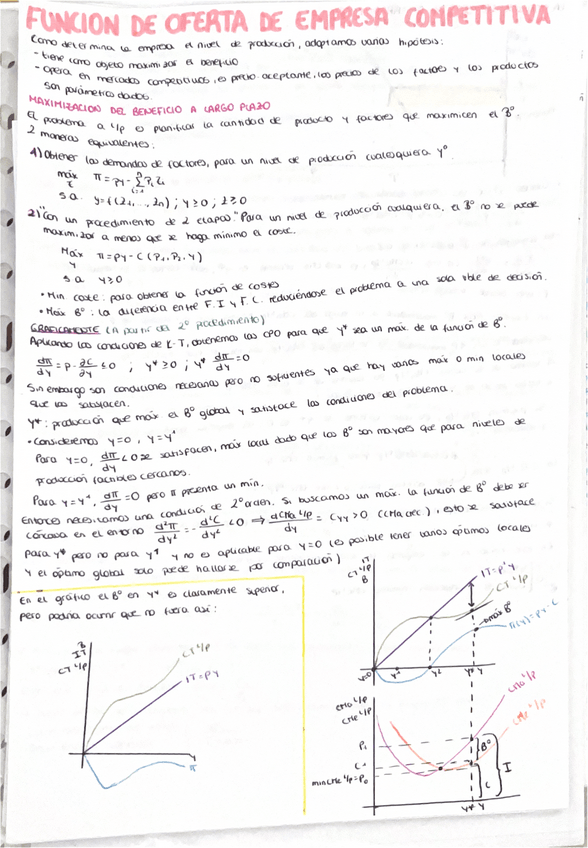 FUNCION DE OFERTA DE EMPRESA COMPETITIVA
Como determina la empresa el nivel de producción, adoptamos varias hipótesis:
- tiene como objeto maximizar el beneficio
- opera en mercados competitivos, es precio aceptante, los precios de los factores y los productos
son parámetros dados.
MAXIMIZACION DEL BENEFICIO A LARGO PLAZO
El problema a L/p es planificar la cantidad de producto y factores que maximicen el Bº.
2 maneras equivalentes:
1) Obtener las demandas de factores, para un nivel de producción cualesquiera yº
máx π = py - Σ Pi Zi
z i=1
s.a. y = f(Z1, ..., Zn); y ≥ 0; z ≥ 0
2) Con un procedimiento de 2 etapas. "Para un nivel de producción cualquiera, el Bº no se puede
maximizar a menos que se haga mínimo el coste.
Máx π = py - C (P1, P2, y)
y
s.a y ≥ 0
• Min coste: para obtener la función de costes
• Máx Bº: la diferencia entre F.I y F.C. reduciéndose el problema a una sola vble de decisión.
GRAFICAMENTE (A partir del 2º procedimiento)
Aplicando las condiciones de K-T, obtenemos las CPO para que y* sea un máx. de la función de Bº.
dπ/dy = p - ∂C/∂y ≤ 0 ; y* ≥ 0 ; y* dπ/dy = 0
Sin embargo son condiciones necesarias pero no suficientes ya que hay varios máx o min locales
que las satisfacen.
y*: producción que max el Bº global y satisface las condiciones del problema.
• Consideremos y=0, y=y¹
Para y=0, dπ/dy < 0 se satisfacen, máx local dado que los Bº son mayores que para niveles de
producción factibles cercanos.
Para y=y¹, dπ/dy = 0 pero π presenta un min.
Entonces necesitamos una condición de 2º orden. Si buscamos un máx. la función de Bº debe ser
cóncava en el entorno d²π/dy² = - d²C/dy² < 0 ⇒ dCMa L/p/dy = Cyy > 0 (CMa crec.), esto se satisface
para y* pero no para y¹ y no es aplicable para y=0 (es posible tener varios óptimos locales
y el óptimo global solo puede hallarse por comparación)
En el gráfico el Bº en y* es claramente superior,
pero podría ocurrir que no fuera así:
B
IT
CT L/P
CT L/P
IT=PY
Y
π
IT
CT L/P
B
IT=P·Y
CT L/P
máx Bº
π(y)=py-C
y=0
y¹
y²
y*
Y
CMa L/P
CMe L/P
CMa L/P
CMe L/P
P1
C
min CMe L/P=P0
Bº
C
I
y*
Y